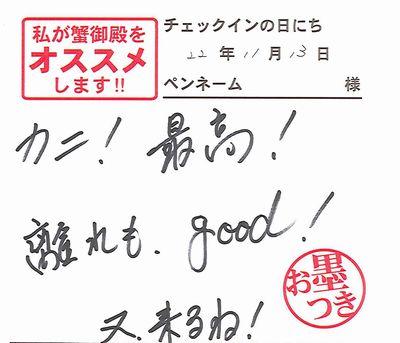 私が蟹御殿を
オススメ
します!!
チェックインの日にち
22年11月13日
ペンネーム 様
カニ! 最高!
離れも、good!
又、来るね!
お墨つき